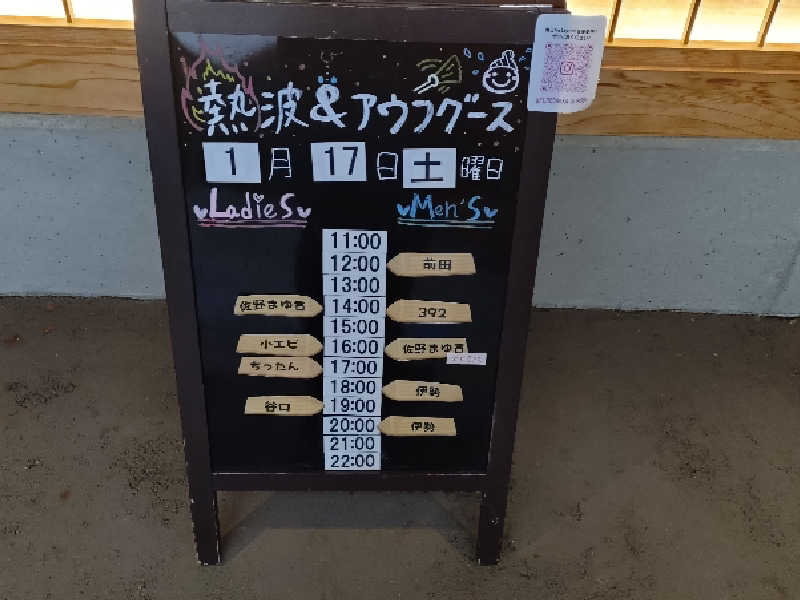 熱波&アウフグース
1月17日土曜日
Ladies Men's
11:00
12:00 前田
13:00
佐野まゆ香 14:00 392
15:00
小エビ 16:00 佐野まゆ香
ちったん 17:00
18:00 伊勢
谷口 19:00
20:00 伊勢
21:00
22:00